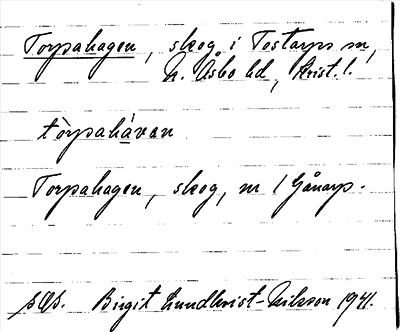 Torpahagen, skog i Tostarps sn,
N. Åsbo hd, Krist. l.
tòrpahávan
Torpahagen, skog, nr 1 Gånarp.
Birgit Lundkvist-Nilsson 1941.